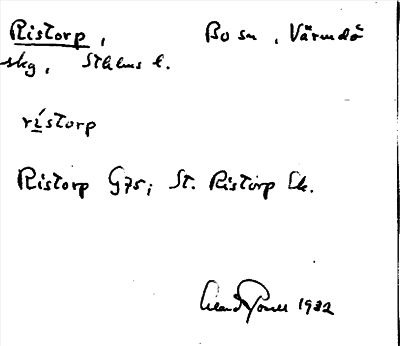 Ristorp, Bo sn, Värmdö
skg, Sthlms l.
rístorp
Ristorp G75; St. Ristorp Ek.
1932